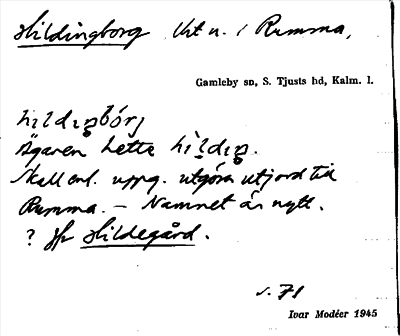 Hildingborg Uht u. i Rumma,
Gamleby sn, S. Tjusts hd, Kalm. l.
hìldiŋbórj
Ägaren hette hìldiŋ.
Skall enl. uppg. utgöra utjord till
Rumma. – Namnet är nytt.
? Jfr Hildegård.
s. 71
Ivar Modéer 1945